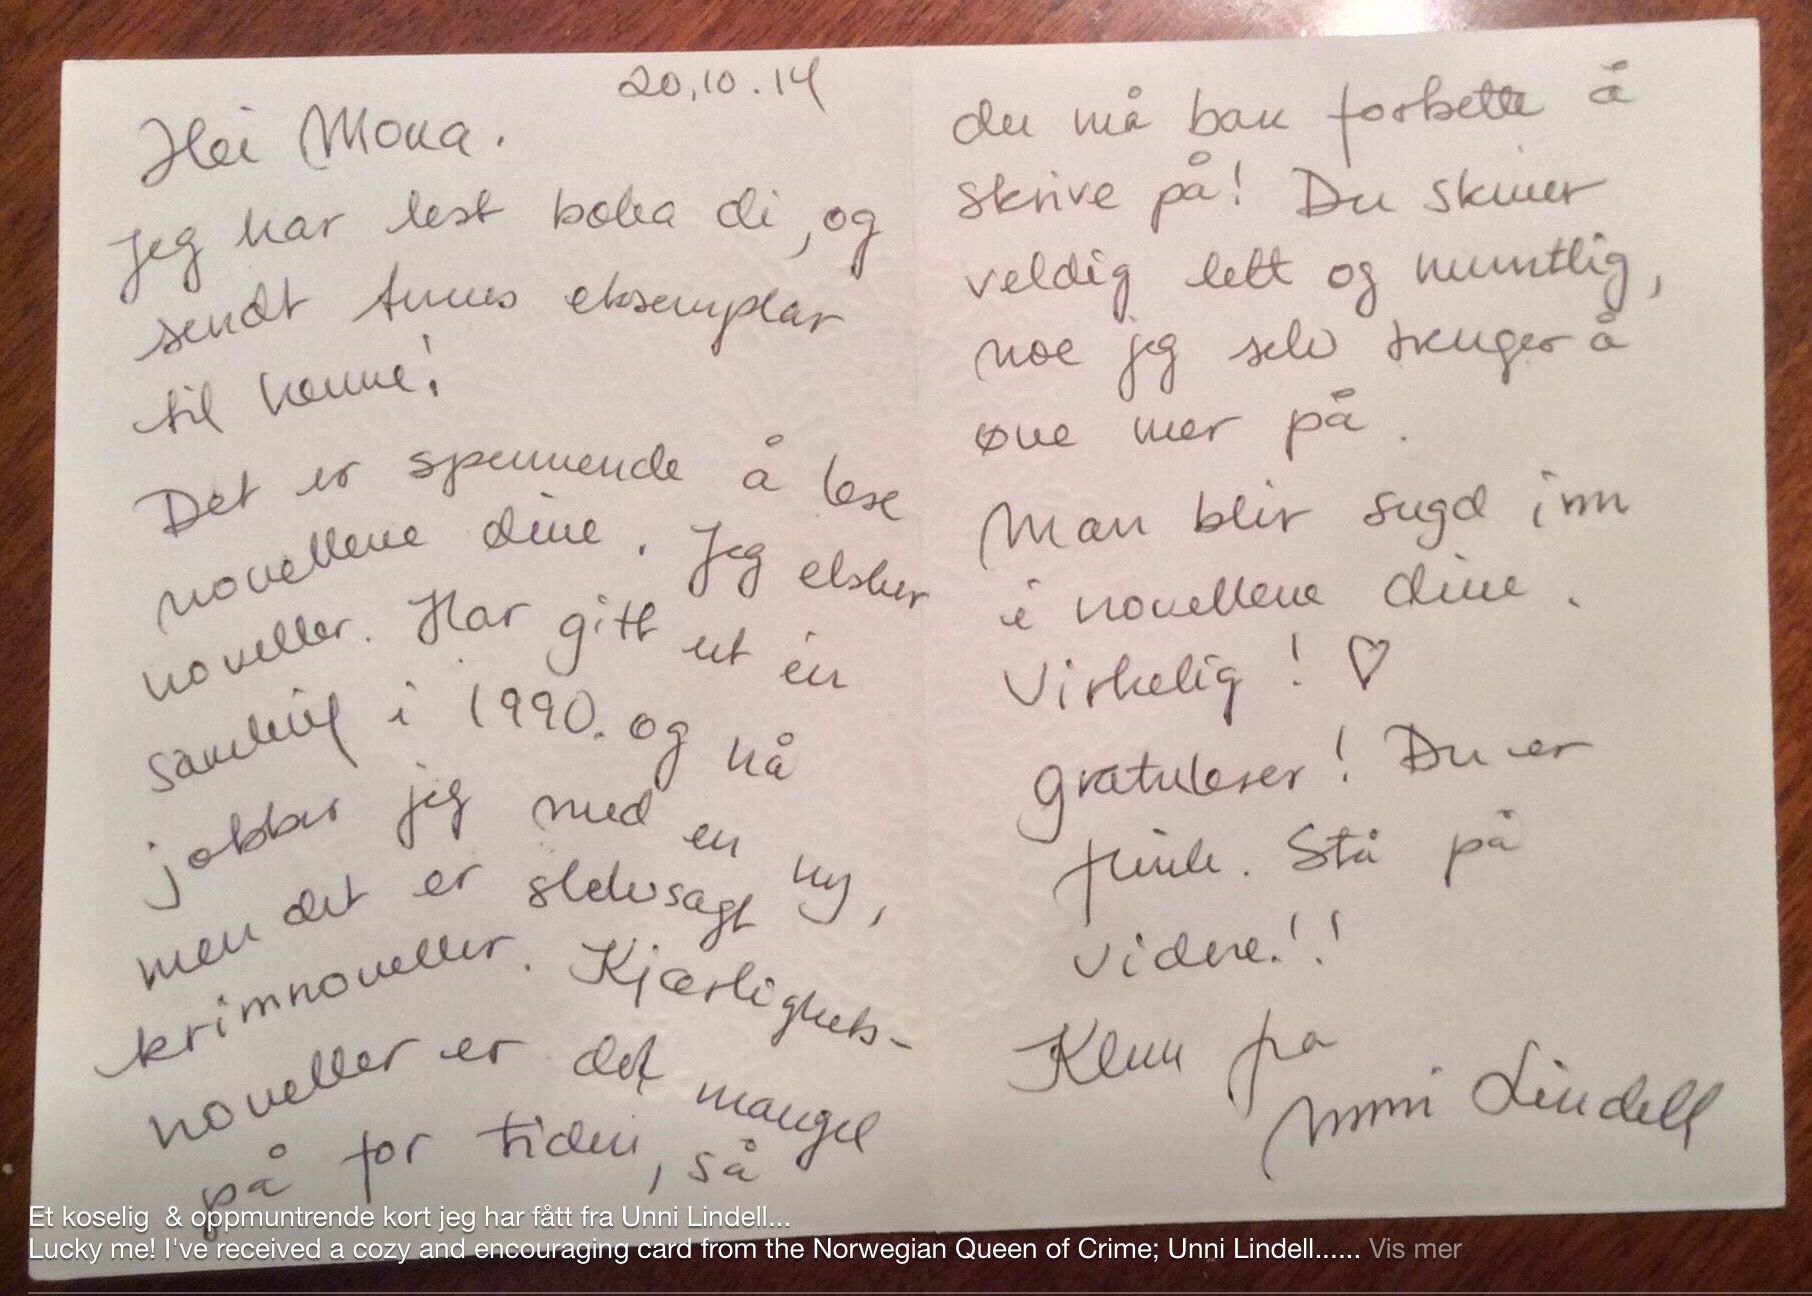 20.10.14
Hei Mona.
Jeg har lest boka di, og
sendt Annes eksemplar
til henne!
Det er spennende å lese
novellene dine. Jeg elsker
noveller. Har gitt ut én
samling i 1990. og nå
jobber jeg med en ny,
men det er selvsagt
krimnoveller. Kjærlighets-
noveller er det mangel
på for tiden, så
du må bare fortsette å
skrive på! Du skriver
veldig lett og muntlig,
noe jeg selv trenger å
øve mer på.
Man blir sugd inn
i novellene dine.
Virkelig! ♡
gratulerer! Du er
flink. Stå på
videre!!
Klem fra
Unni Lindell
Et koselig & oppmuntrende kort jeg har fått fra Unni Lindell...
Lucky me! I've received a cozy and encouraging card from the Norwegian Queen of Crime; Unni Lindell...... Vis mer